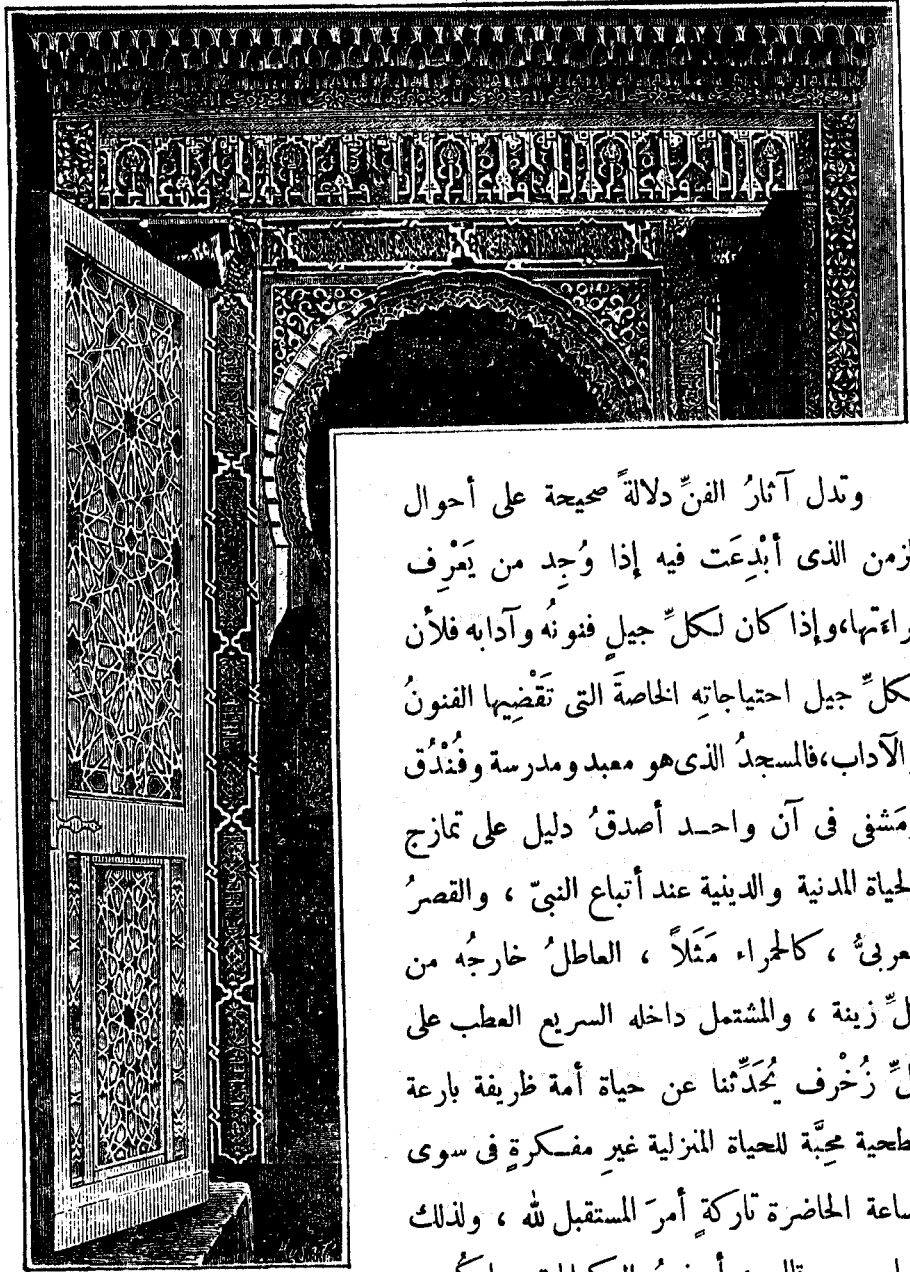 وتدل آثارُ الفنِّ دلالةً صحيحة على أحوال
لزمن الذى أبْدِعَت فيه إذا وُجِد من يَعْرِف
راءتها،وإذا كان لكلِّ جيلٍ فنونُه وآدابه فلأن
كلِّ جيل احتياجاتِه الخاصةَ التى تَقْضِيها الفنونُ
الآداب،فالمسجدُ الذى هو معبد ومدرسة وفُنْدُق
مَشفى فى آن واحد أصدقُ دليل على تمازج
لحياة المدنية والدينية عند أتباع النبىّ ، والقصرُ
لعربىُّ ، كالحمراء مَثَلاً ، العاطلُ خارجُه من
لِّ زينة ، والمشتمل داخله السريع العطب على
لِّ زُخْرف يُحَدِّثنا عن حياة أمة ظريفة بارعة
طحية محِبَّة للحياة المنزلية غيرِ مفكرةٍ فى سوى
ساعة الحاضرة تاركةٍ أمرَ المستقبل لله ، ولذلك